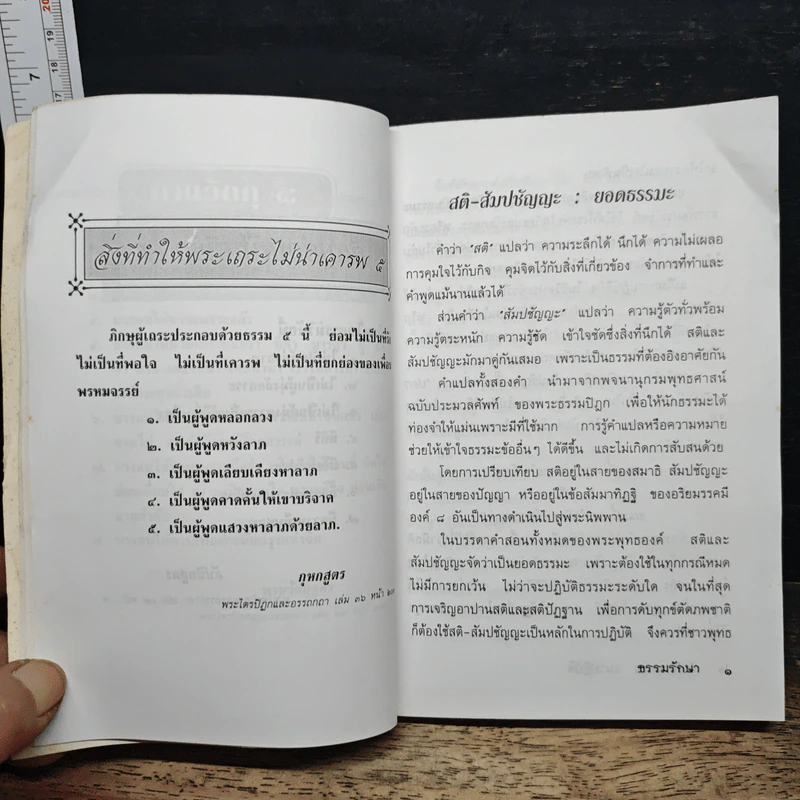 7
20
19
18
17
สิ่งที่ทำให้พระเถระไม่น่าเคารพ ๕
ภิกษุผู้เถระประกอบด้วยธรรม ๕ นี้ ย่อมไม่เป็นที่
ไม่เป็นที่พอใจ ไม่เป็นที่เคารพ ไม่เป็นที่ยกย่องของเพื่อ
พรหมจรรย์
๑. เป็นผู้พูดหลอกลวง
๒. เป็นผู้พูดหวังลาภ
๓. เป็นผู้พูดเลียบเคียงหาลาภ
๔. เป็นผู้พูดคาดคั้นให้เขาบริจาค
๕. เป็นผู้พูดแสวงหาลาภด้วยลาภ.
กุหกสูตร
พระไตรปิฎกและอรรถกถา เล่ม ๓๖ หน้า
สติ-สัมปชัญญะ : ยอดธรรมะ
คำว่า "สติ" แปลว่า ความระลึกได้ นึกได้ ความไม่เผลอ
การคุมใจไว้กับกิจ คุมจิตไว้กับสิ่งที่เกี่ยวข้อง จำการที่ทำและ
คำพูดแม้นานแล้วได้
ส่วนคำว่า "สัมปชัญญะ" แปลว่า ความรู้ตัวทั่วพร้อม
ความรู้ตระหนัก ความรู้ชัด เข้าใจชัดซึ่งสิ่งที่นึกได้ สติและ
สัมปชัญญะมักมาคู่กันเสมอ เพราะเป็นธรรมที่ต้องอิงอาศัยกัน
คำแปลทั้งสองคำ นำมาจากพจนานุกรมพุทธศาสน์
ฉบับประมวลศัพท์ ของพระธรรมปิฎก เพื่อให้นักธรรมะได้
ท่องจำให้แม่นเพราะมีที่ใช้มาก การรู้คำแปลหรือความหมาย
ช่วยให้เข้าใจธรรมะข้ออื่นๆ ได้ดีขึ้น และไม่เกิดการสับสนด้วย
โดยการเปรียบเทียบ สติอยู่ในสายของสมาธิ สัมปชัญญะ
อยู่ในสายของปัญญา หรืออยู่ในข้อสัมมาทิฏฐิ ของอริยมรรคมี
องค์ ๘ อันเป็นทางดำเนินไปสู่พระนิพพาน
ในบรรดาคำสอนทั้งหมดของพระพุทธองค์ สติและ
สัมปชัญญะจัดว่าเป็นยอดธรรมะ เพราะต้องใช้ในทุกกรณีหมด
ไม่มีการยกเว้น ไม่ว่าจะปฏิบัติธรรมะระดับใด จนในที่สุด
การเจริญอาปานสติและสติปัฏฐาน เพื่อการดับทุกข์ตัดภพชาติ
ก็ต้องใช้สติ-สัมปชัญญะเป็นหลักในการปฏิบัติ จึงควรที่ชาวพุทธ
ธรรมรักษา ๑